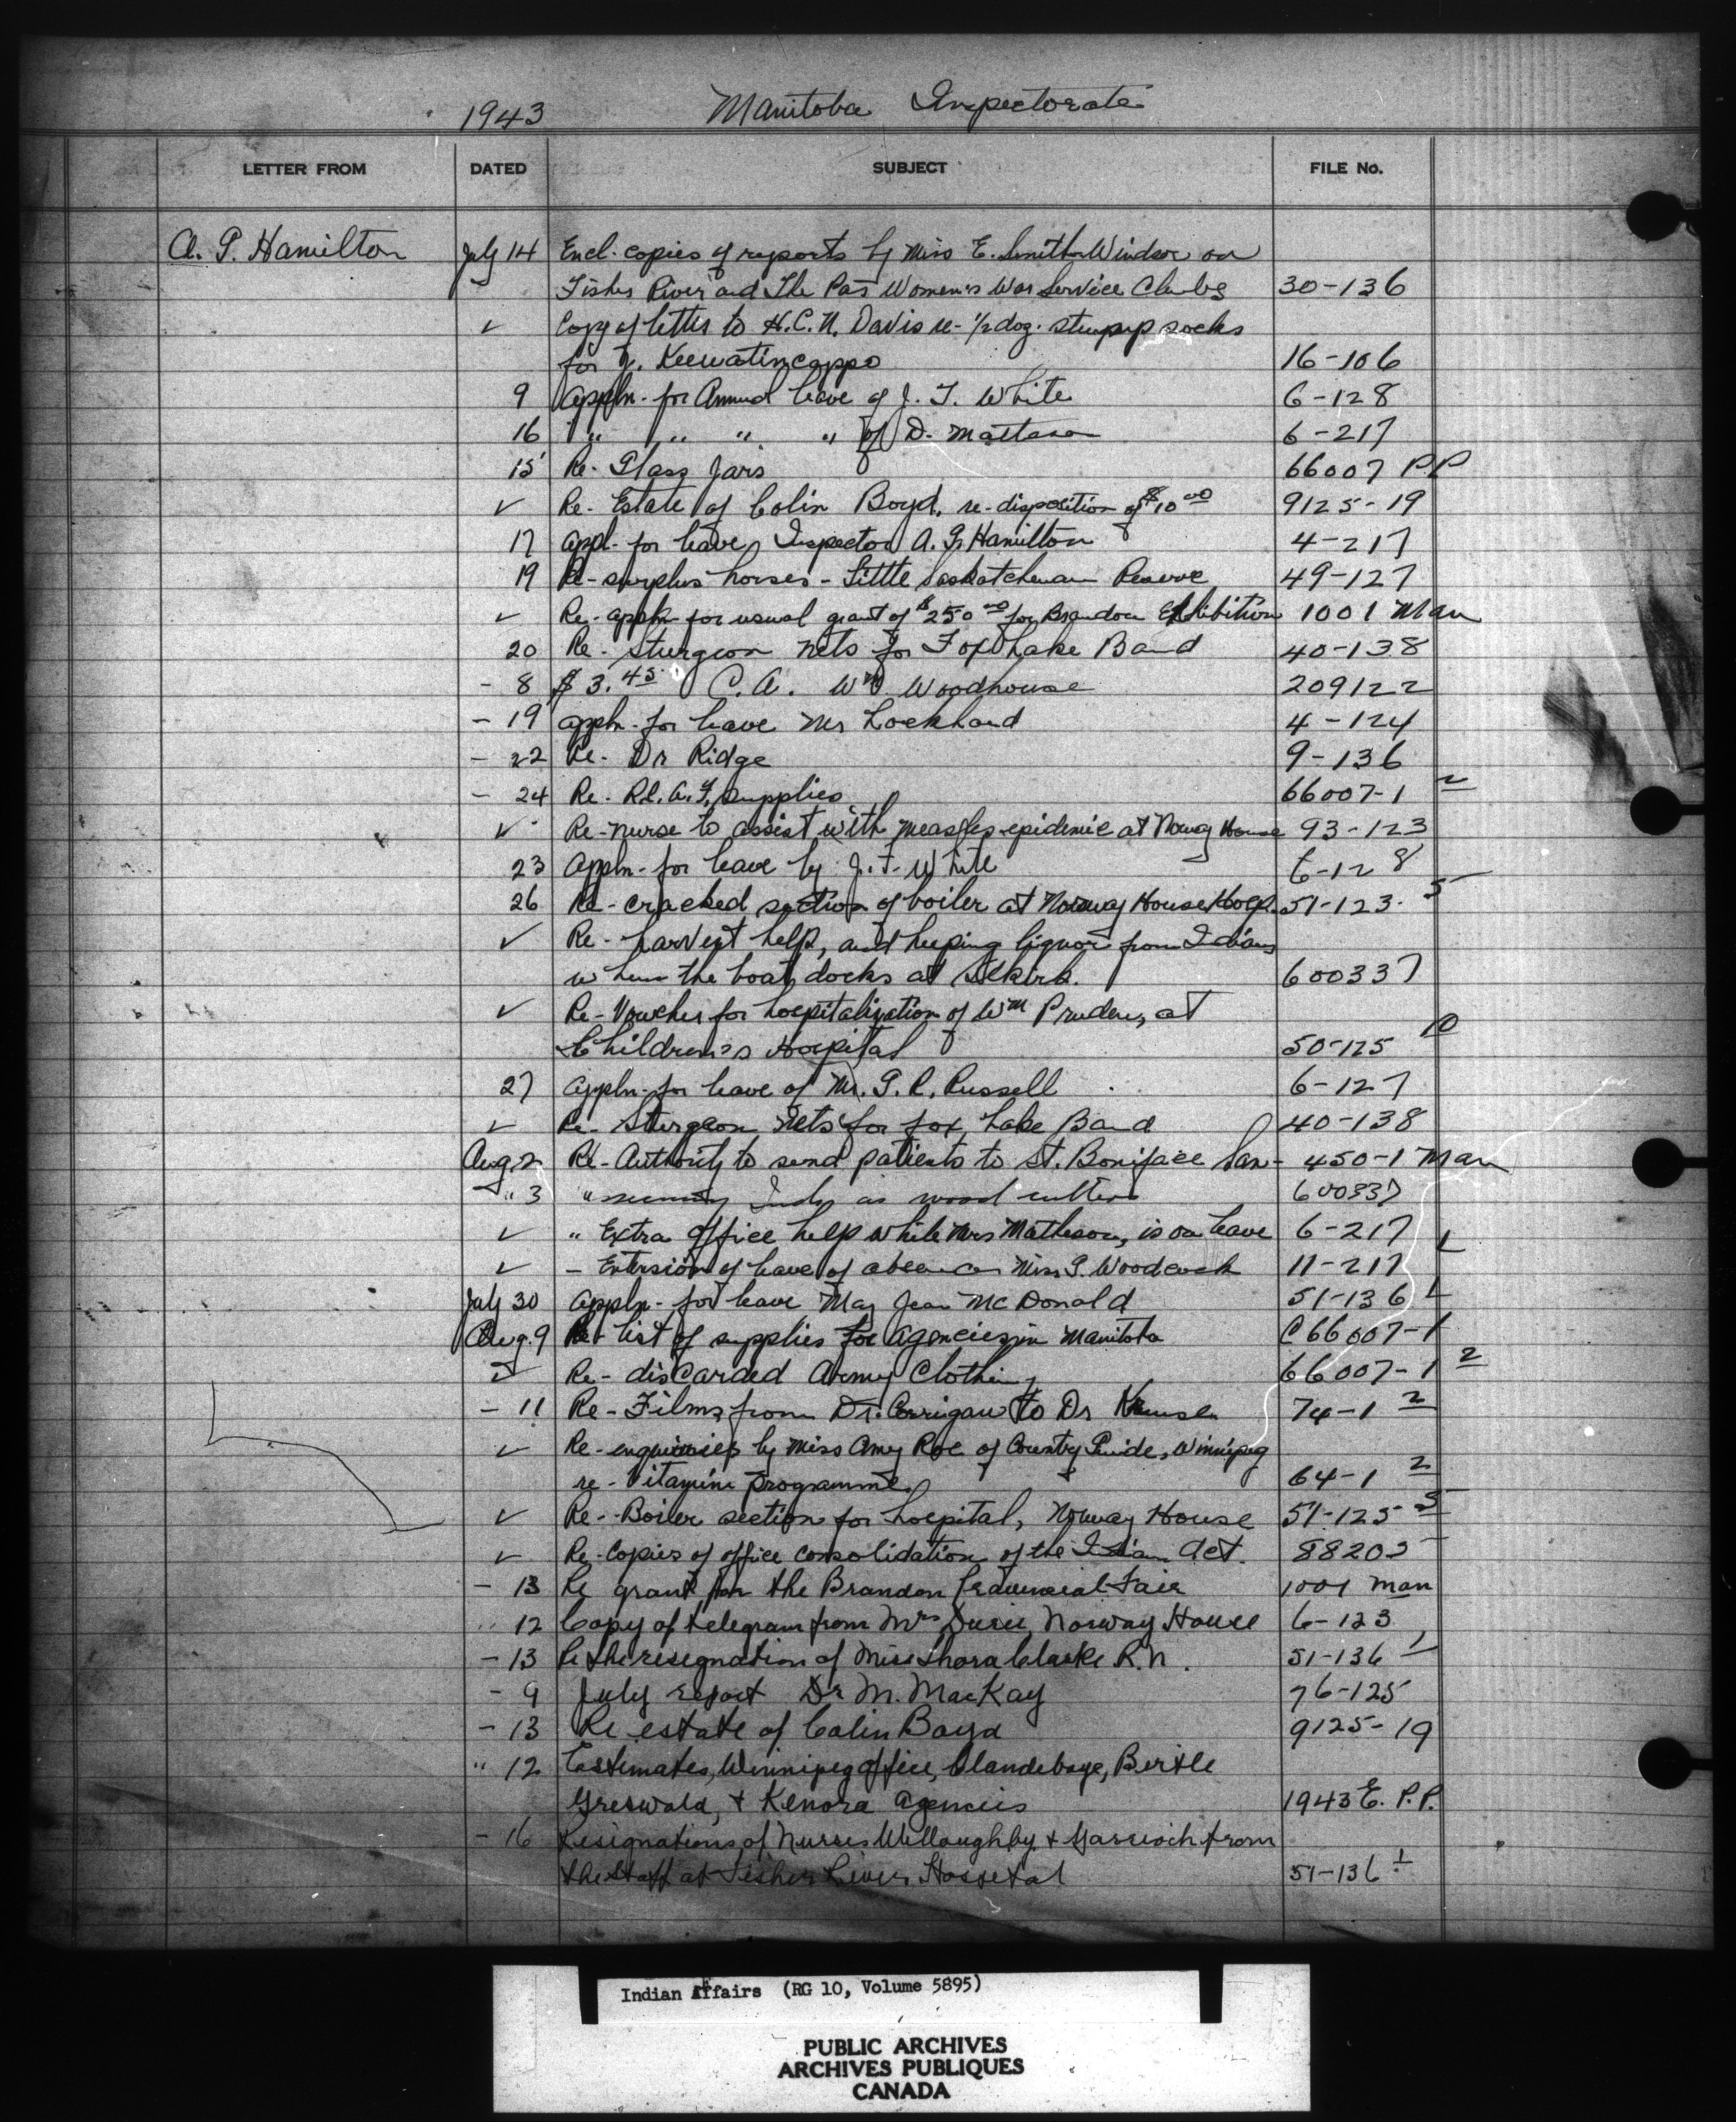 1943 Manitoba Inspectorate
LETTER FROM DATED SUBJECT FILE No.
A. G. Hamilton July 14 Encl. copies of reports by Miss E. Smith-Windsor on
Fisher River and The Pas Women's War Service Clubs 30-136
✓ Copy of letter to H.C.N. Davis re- 1/2 doz. stump socks
for Keewatincappo 16-106
9 Appln- for Annual leave of J. F. White 6-128
16 " " " " of D. 6-217
15 Re- Glass Jars 66007 P.P
✓ Re- Estate of Colin Boyd, re-disposition of $10 00 9125-19
17 Appl- for leave, Inspector A. G. Hamilton 4-217
19 Re-surplus horses- Little Saskatchewan Reserve 49-127
✓ Re-appln for usual grant of $250 00 for Brandon Exhibition 1001 Man
20 Re- Sturgeon nets for Fox Lake Band 40-138
- 8 $3.45 C.A. Wm Woodhouse 209122
- 19 Appln- for leave Mr Lockhard 4-124
- 22 Re- Dr Ridge 9-136
- 24 Re- R.C.A.F. supplies 66007-1 2
✓ Re-nurse to assist with measles epidemic at Norway House 93-123
23 Appln- for leave by J. F. White 6-128
26 Re- cracked section of boiler at Norway House Hosp. 51-123- 5
✓ Re- harvest help, and keeping liquor from Indians
when the boat docks at Selkirk. 600337
✓ Re- Voucher for hospitalization of Wm Pruden, at
Children's Hospital 50-125 10
27 Appln- for leave of Mr. G. R. Russell 6-127
✓ Re- Sturgeon Nets for Fox Lake Band 40-138
Aug. 2 Re-Authority to send patients to St. Boniface San- 450-1 Man
" 3 " Inds as wood cutters 600337
✓ " Extra office help while Mrs Matheson, is on leave 6-217
✓ - Extension of leave of absence Miss G. Woodcock 11-217 1
July 30 Appln- for leave May Jean McDonald 51-136 1
Aug. 9 Re- List of supplies for agencies in Manitoba C66007-1
✓ Re- discarded Army Clothing 66007-1 2
- 11 Re- Films from Dr. Corrigan to Dr 74-1 2
✓ Re- enquiries by Miss Amy Roe of Country Guide, Winnipeg
re- Vitamine programme. 64-1 2
✓ Re- Boiler section for hospital, Norway House 51-125 5
✓ Re- Copies of office consolidation of the Indian Act. 88205
- 13 Re grant for the Brandon Provincial Fair 1001 Man
" 12 Copy of telegram from Mrs Norway House 6-123
- 13 Re the resignation of Miss Thora Clarke R.N. 51-136 1
- 9 July report Dr M. MacKay 76-125
- 13 Re estate of Colin Boyd 9125-19
" 12 Estimates, Winnipeg office, Clandeboye, Birtle
Griswold, + Kenora Agencies 1943 E. P.P.
- 16 Resignations of Nurses Willoughby + Garrioch from
the staff at Fisher River Hospital 51-136 1
Indian Affairs (RG 10, Volume 5895)
PUBLIC ARCHIVES
ARCHIVES PUBLIQUES
CANADA